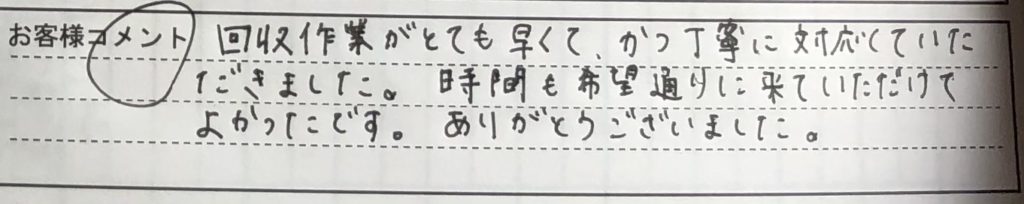 お客様コメント 回収作業がとても早くて、かつ丁寧に対応していた
だきました。 時間も希望通りに来ていただけて
よかったです。 ありがとうございました。